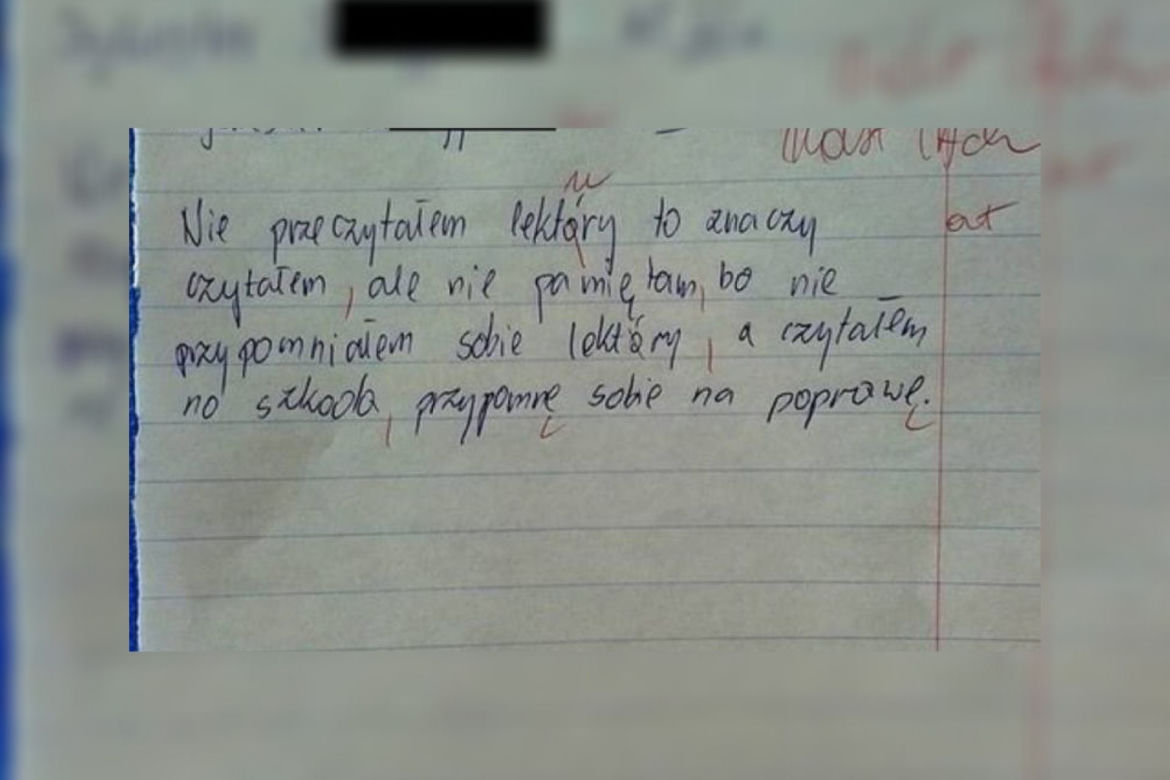 u
Nie przeczytałem lektóry to znaczy at
czytałem, ale nie pamiętam, bo nie
przypomniałem sobie lektóry, a czytałem
no szkoda, przypomnę sobie na poprawę.